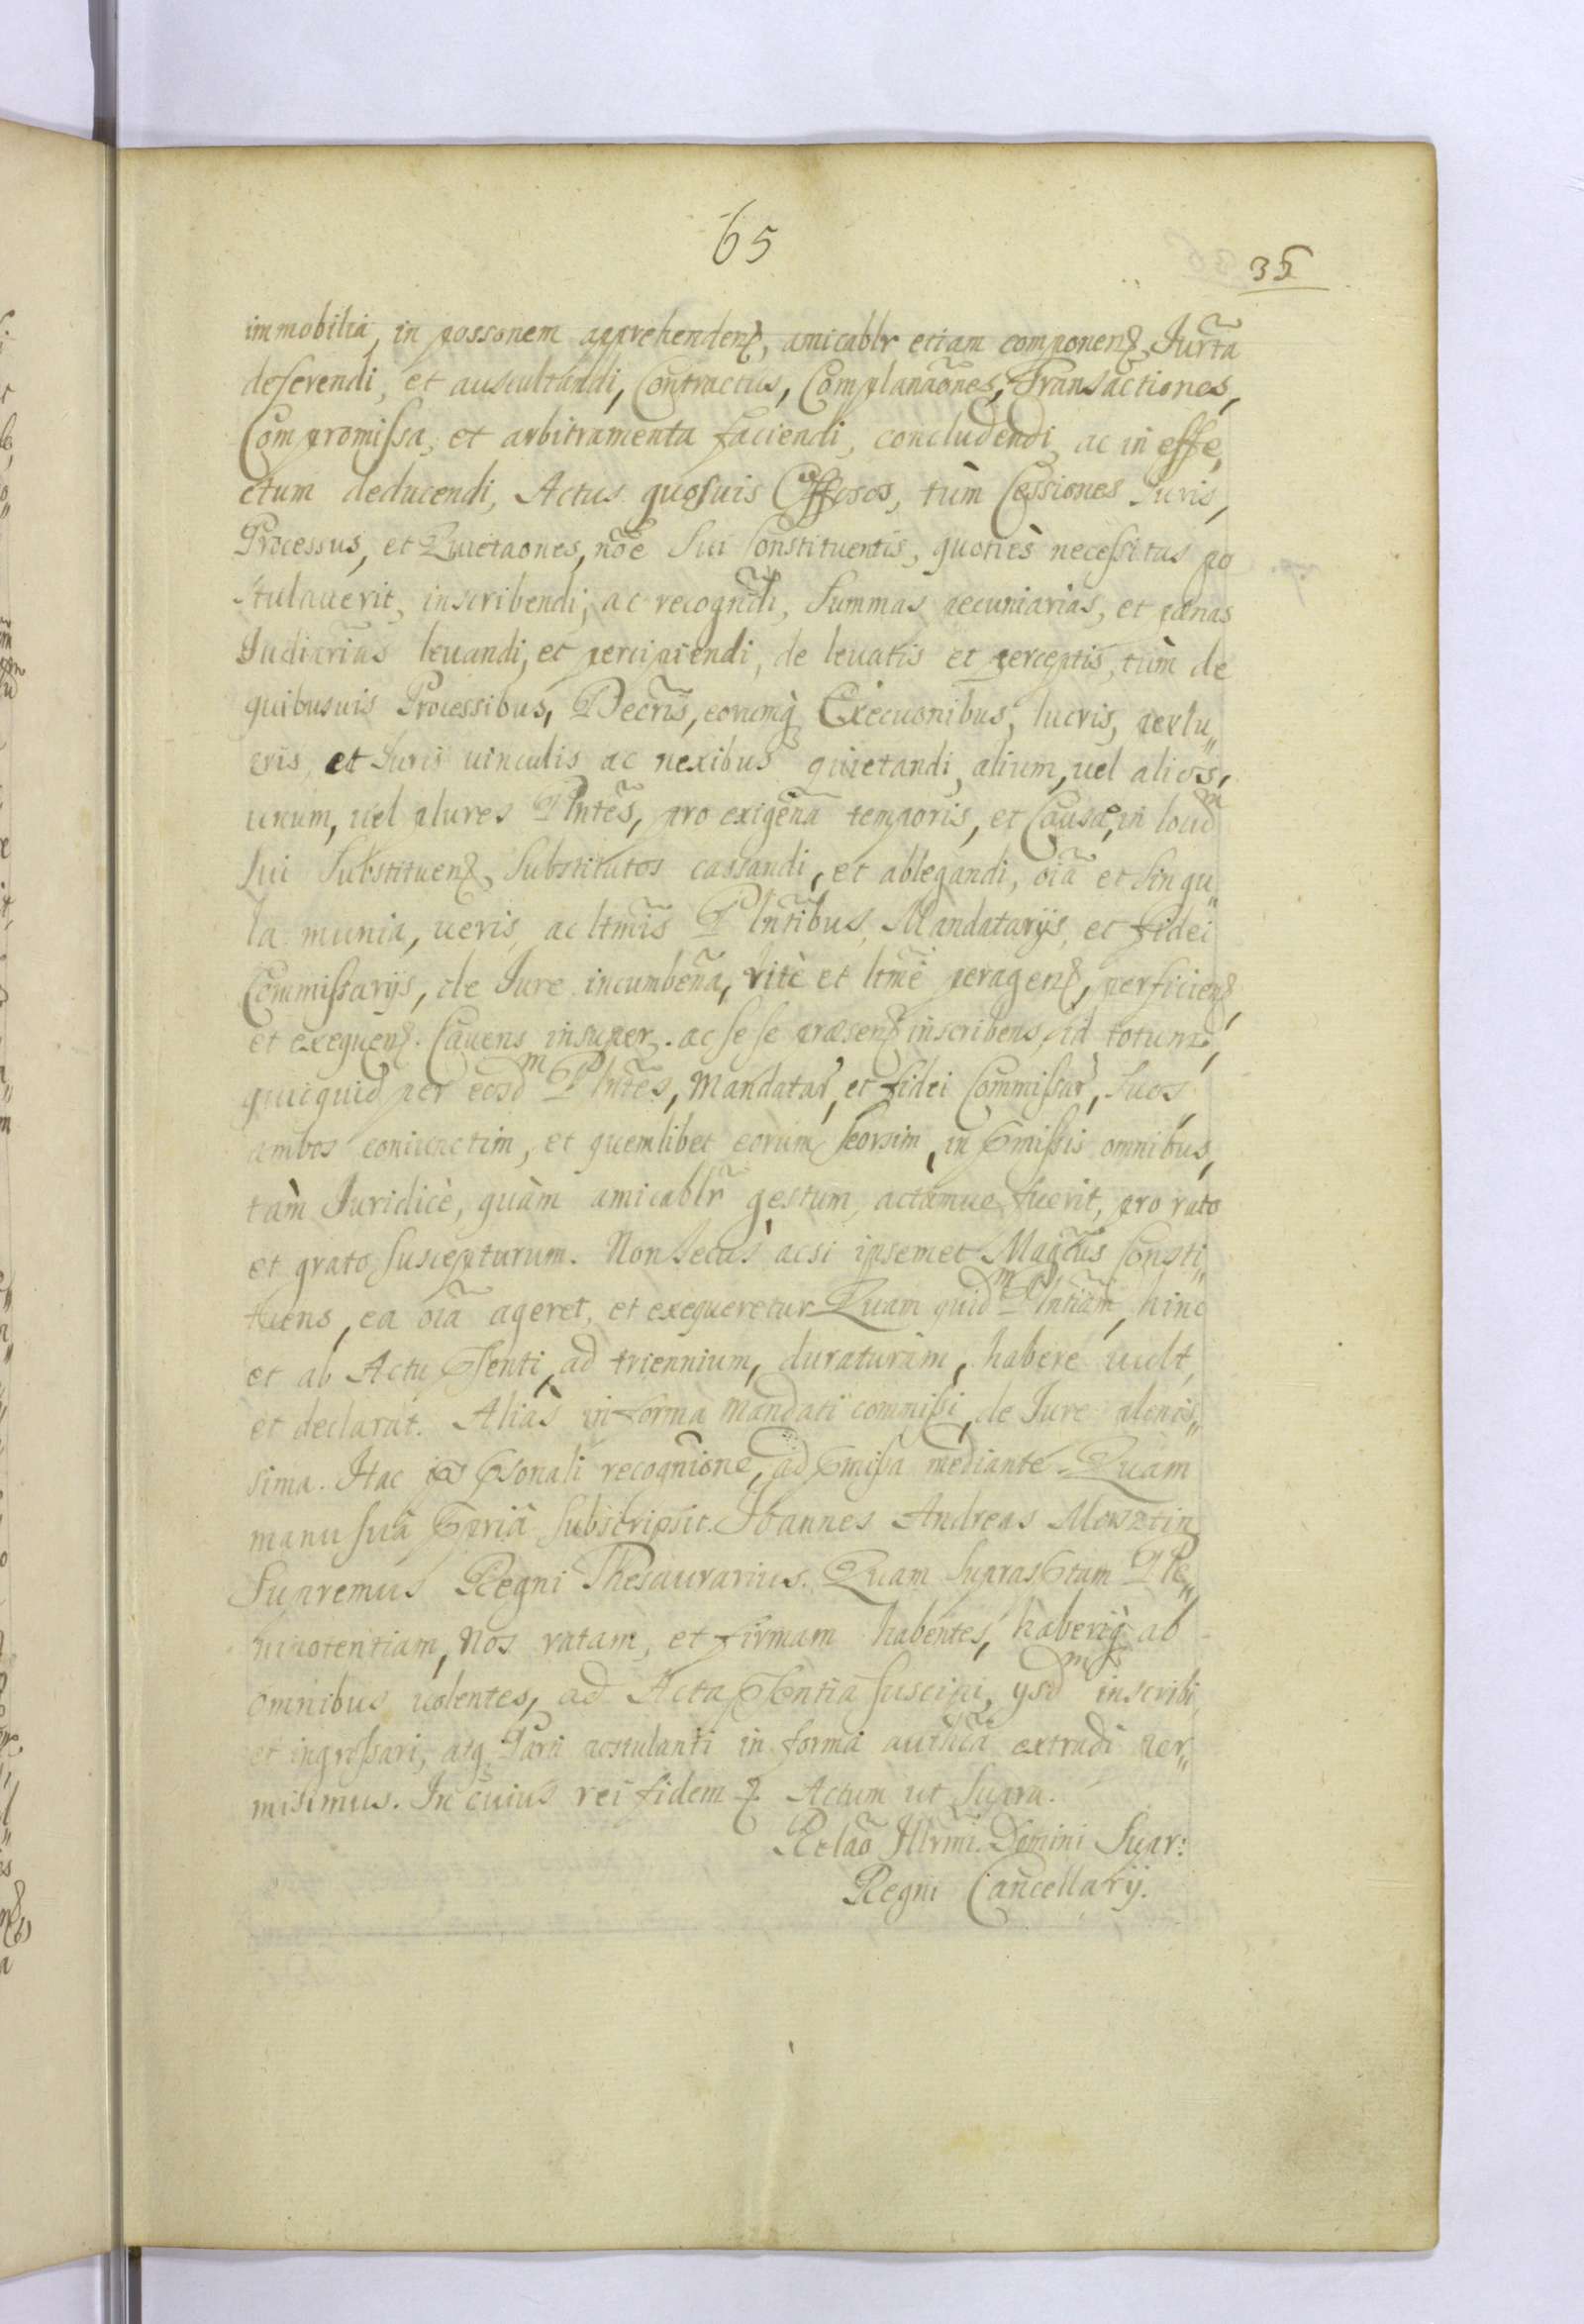 65
35
immobilia, in possonem apprehendenꝫ, amicablr etiam componenꝫ, Jurta
deferendi, et auscultandi, Contractus, Complanaones, Transactiones,
Compromissa, et arbitramenta faciendi, concludendi, ac in effe,
ctum deducendi, Actus quosuis Offosos, tùm Cessiones Juris,
Processus, et Quietaones, noe sui Constituentis, quoties necessitas po
stulauerit, inscribendi, ac recogndi, summas pecuniarias, et pænas
Judiarias leuandi, et percipiendi, de leuatis et perceptis, tùm de
quibusuis Processibus, Decris, eorumq Execuonibus, lucris, perlu„
cris, et Juris uinculis ac nexibus quietandi, alium, uel alios,
unum, uel plures Plntes, pro exigena temporis, et Causæ, in loud m
sui substituenꝫ, substitutos cassandi, et ablegandi, oia et singu„
la munia, ueris, ac ltmis Plntibus, Mandatarijs, et fidei
Commissarijs, de Jure incumbena, ritè et ltmè peragenꝫ, perficienꝫ,
et exequenꝫ. Cauens insuper. ac sese præsenꝫ inscribens, id totum,
quicquid per eosd m Plntes, Mandatar, et fidei Commissar, suos
ambos coniunctim, et quemlibet eorum seorsim, in pmissis omnibus,
tàm Juridicè, quàm amicablr gestum, actumue fuerit, pro rato
et grato suscepturum. Non secus acsi ipsemet Magcus Consti„
tuens, ea oia ageret, et exequeretur Quam quid m Plntiam, hinc
et ab Actu psenti, ad triennium, duraturam, habere uult,
et declarat. Aliàs in forma Mandati commissi, de Jure plenis„
sima. Hac psonali recognione, ad pmissa mediante. Quam
manu suâ ppriâ subscripsit. Joannes Andreas Morsztin
Supremus Regni Thesaurarius. Quam suprasptam Ple„
nipotentiam, Nos ratam, et firmam habentes, haberiq ab
omnibus uolentes, ad Acta psentia suscipi, ysd m inscribi,
et ingrossari, atq Parti postulanti in forma authca extradi per„
misimus. In cuius rei fidem ꝫ. Actum ut supra.
Relao Illrmi. Domini Supr:
Regni Cancellarij.